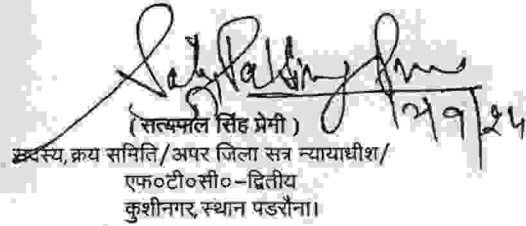 (सत्यपाल सिंह प्रेमी)
सदस्य, क्रय समिति/अपर जिला सत्र न्यायाधीश/
एफ०टी०सी०-द्वितीय
कुशीनगर, स्थान पडरौना।